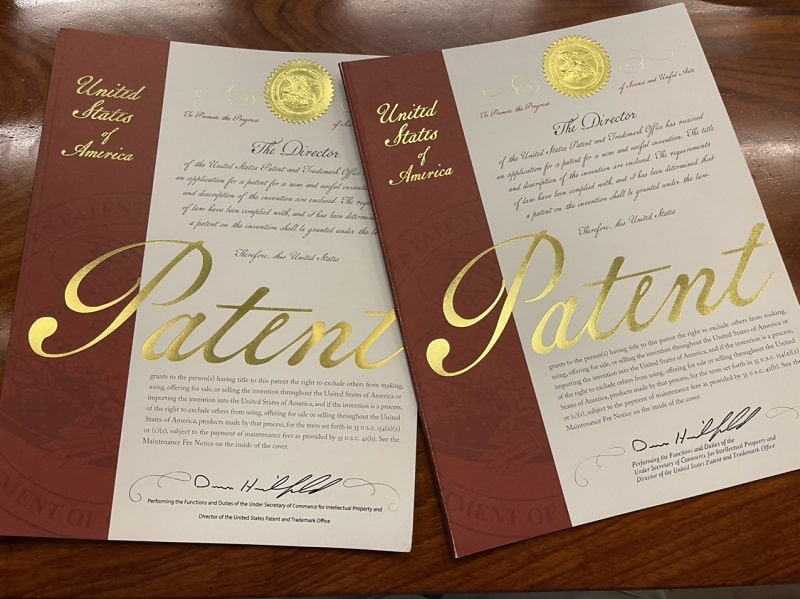 United
States
of
America
To Promote the Progress
of Science
The Director
of the United States Patent and Trademark Office
an application for a patent for a new and useful
and description of the invention are enclosed. The
of law have been complied with, and it has been
a patent on the invention shall be granted under the
Therefore, this United States
Patent
grants to the person(s) having title to this patent the right to exclude others from making,
using, offering for sale, or selling the invention throughout the United States of America or
importing the invention into the United States of America, and if the invention is a process,
of the right to exclude others from using, offering for sale or selling throughout the United
States of America, products made by that process, for the term set forth in 35 U.S.C. 154(a)(2)
or (c)(1), subject to the payment of maintenance fees as provided by 35 U.S.C. 41(b). See the
Maintenance Fee Notice on the inside of the cover.
Performing the Functions and Duties of the Under Secretary of Commerce for Intellectual Property and
Director of the United States Patent and Trademark Office
MENT OF
United
States
of
America
To Promote the Progress
of Science and Useful Arts
The Director
of the United States Patent and Trademark Office has received
an application for a patent for a new and useful invention. The title
and description of the invention are enclosed. The requirements
of law have been complied with, and it has been determined that
a patent on the invention shall be granted under the law.
Therefore, this United States
Patent
grants to the person(s) having title to this patent the right to exclude others from making,
using, offering for sale, or selling the invention throughout the United States of America or
importing the invention into the United States of America, and if the invention is a process,
of the right to exclude others from using, offering for sale or selling throughout the United
States of America, products made by that process, for the term set forth in 35 U.S.C. 154(a)(2)
or (c)(1), subject to the payment of maintenance fees as provided by 35 U.S.C. 41(b). See the
Maintenance Fee Notice on the inside of the cover.
Performing the Functions and Duties of the
Under Secretary of Commerce for Intellectual Property and
Director of the United States Patent and Trademark Office
MENT OF